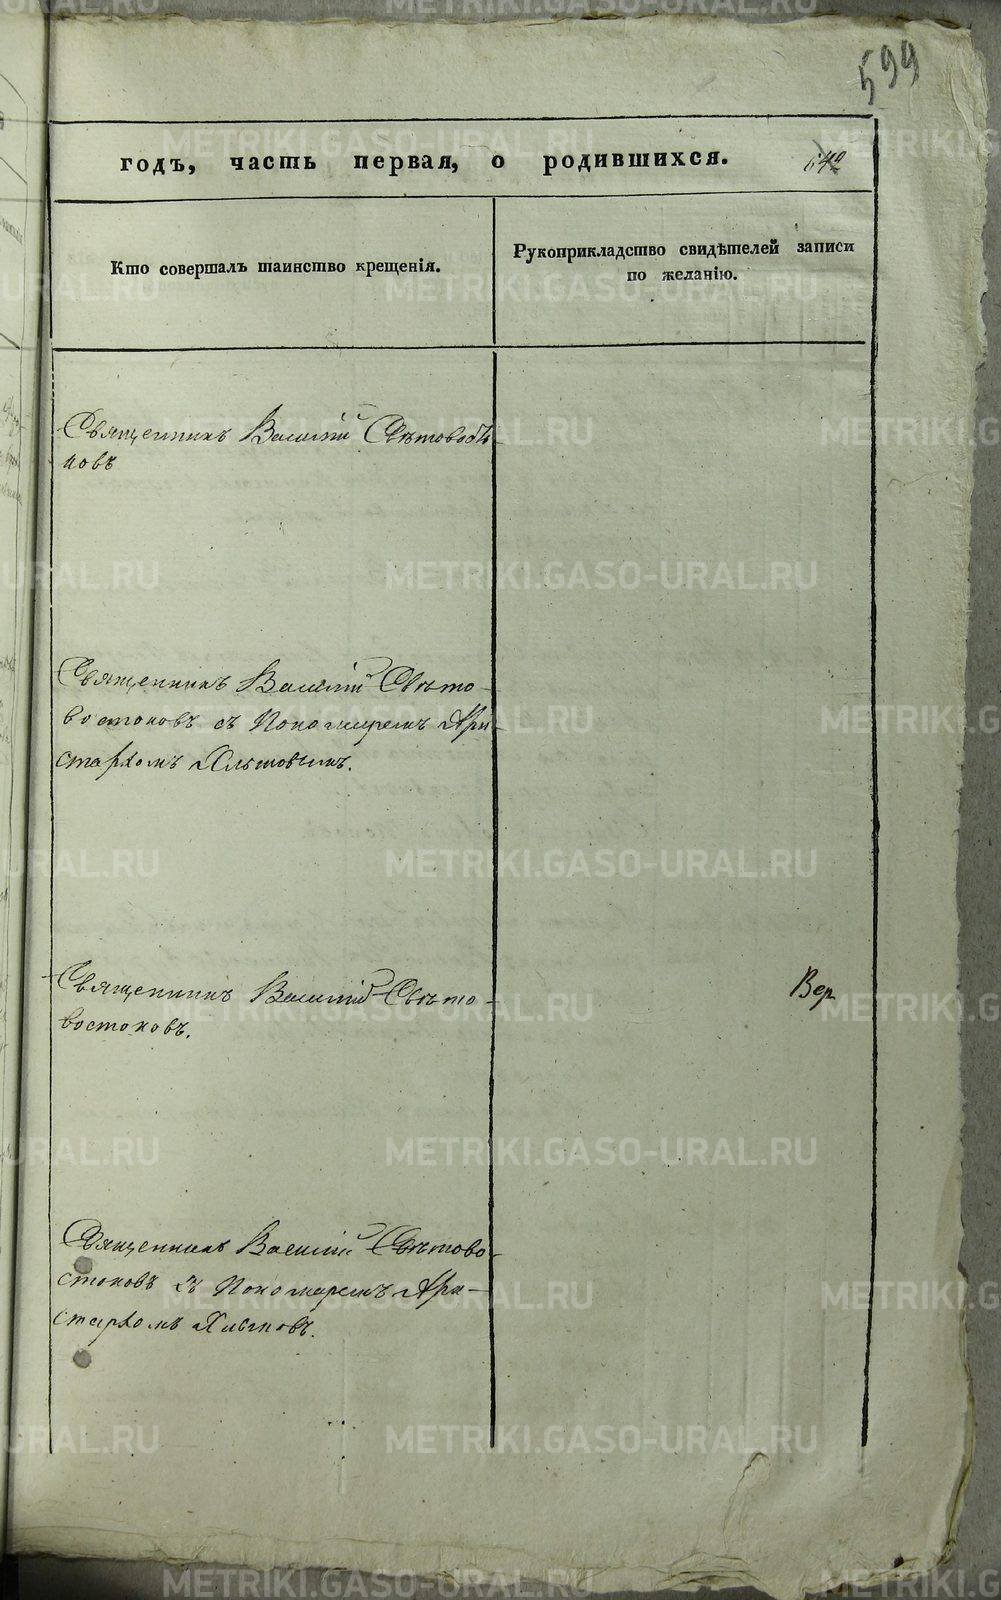 599
годъ, часть первая, о родившихся.
Кто совершалъ таинство крещенія.
Рукоприкладство свидѣтелей записи
по желанію.
Священникъ Василій
новъ
Священникъ Василій Свѣто-
востоковъ съ Пономаремъ Ари-
стархомъ
Священникъ Василій Свѣто-
востоковъ.
Вер
Священникъ Василій Свѣтово-
стоковъ съ Пономаремъ Ари-
стархомъ
METRIKI.GASO-URAL.RU